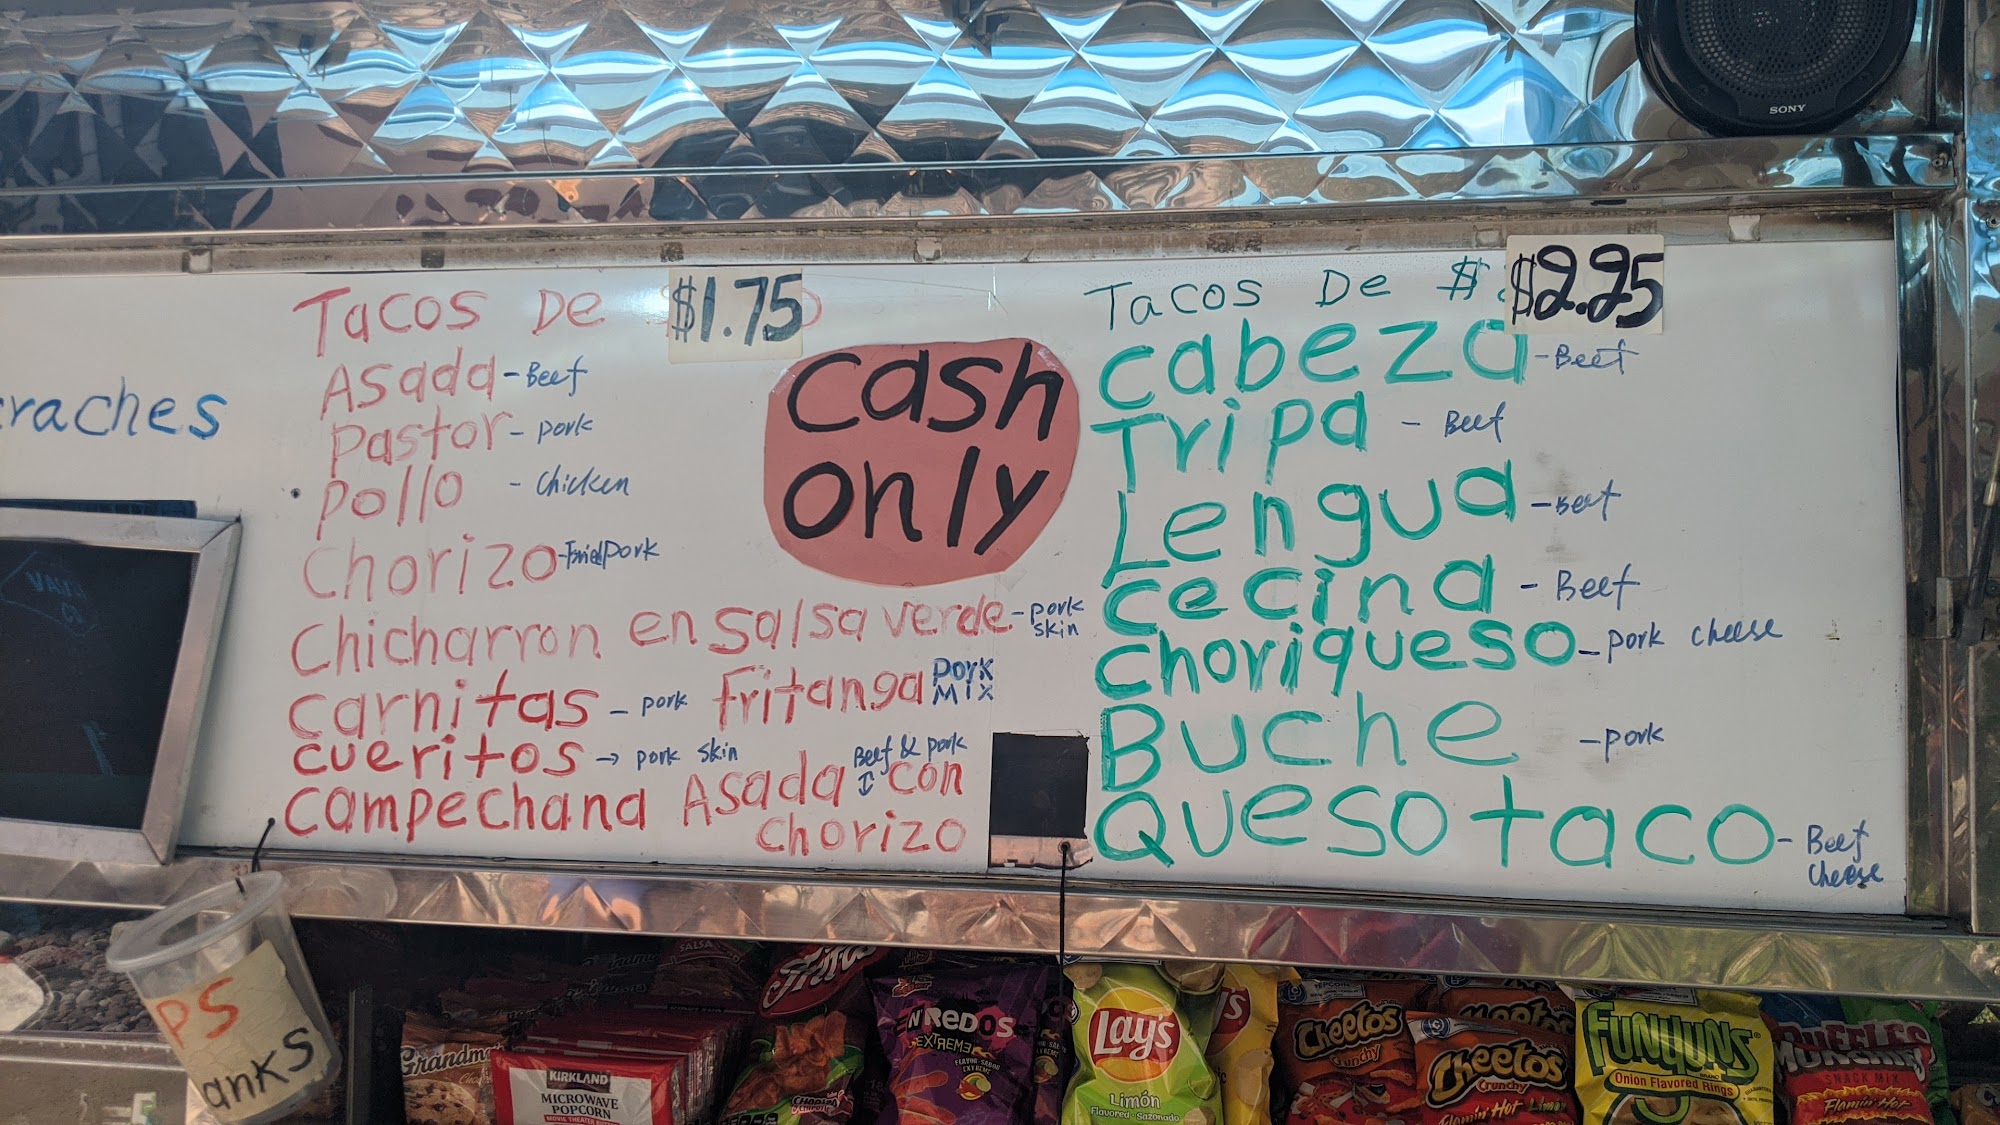 SONY
Tacos De $1.75
Asada - Beef
Pastor - pork
Pollo - chicken
Chorizo - Fried Pork
Chicharron en salsa verde - pork skin
carnitas - pork Fritanga pork mix
cueritos → pork skin
campechana Asada con chorizo
Beef & pork
cash
only
Tacos De $2.25
cabeza - Beef
Tripa - Beef
Lengua - Beef
cecina - Beef
choriqueso - pork cheese
Buche - pork
Queso taco - Beef cheese
raches
PS
anks
Grandma
KIRKLAND
MICROWAVE
POPCORN
MOVIE THEATER
SALSA
EXTREME
Lay's
Limón
Flavored - Sazonado
Cheetos
Crunchy
Cheetos
Crunchy
Flamin' Hot Limón
FUNYUNS
Onion Flavored Rings
MUNCHIES
SNACK MIX
Flamin' Hot